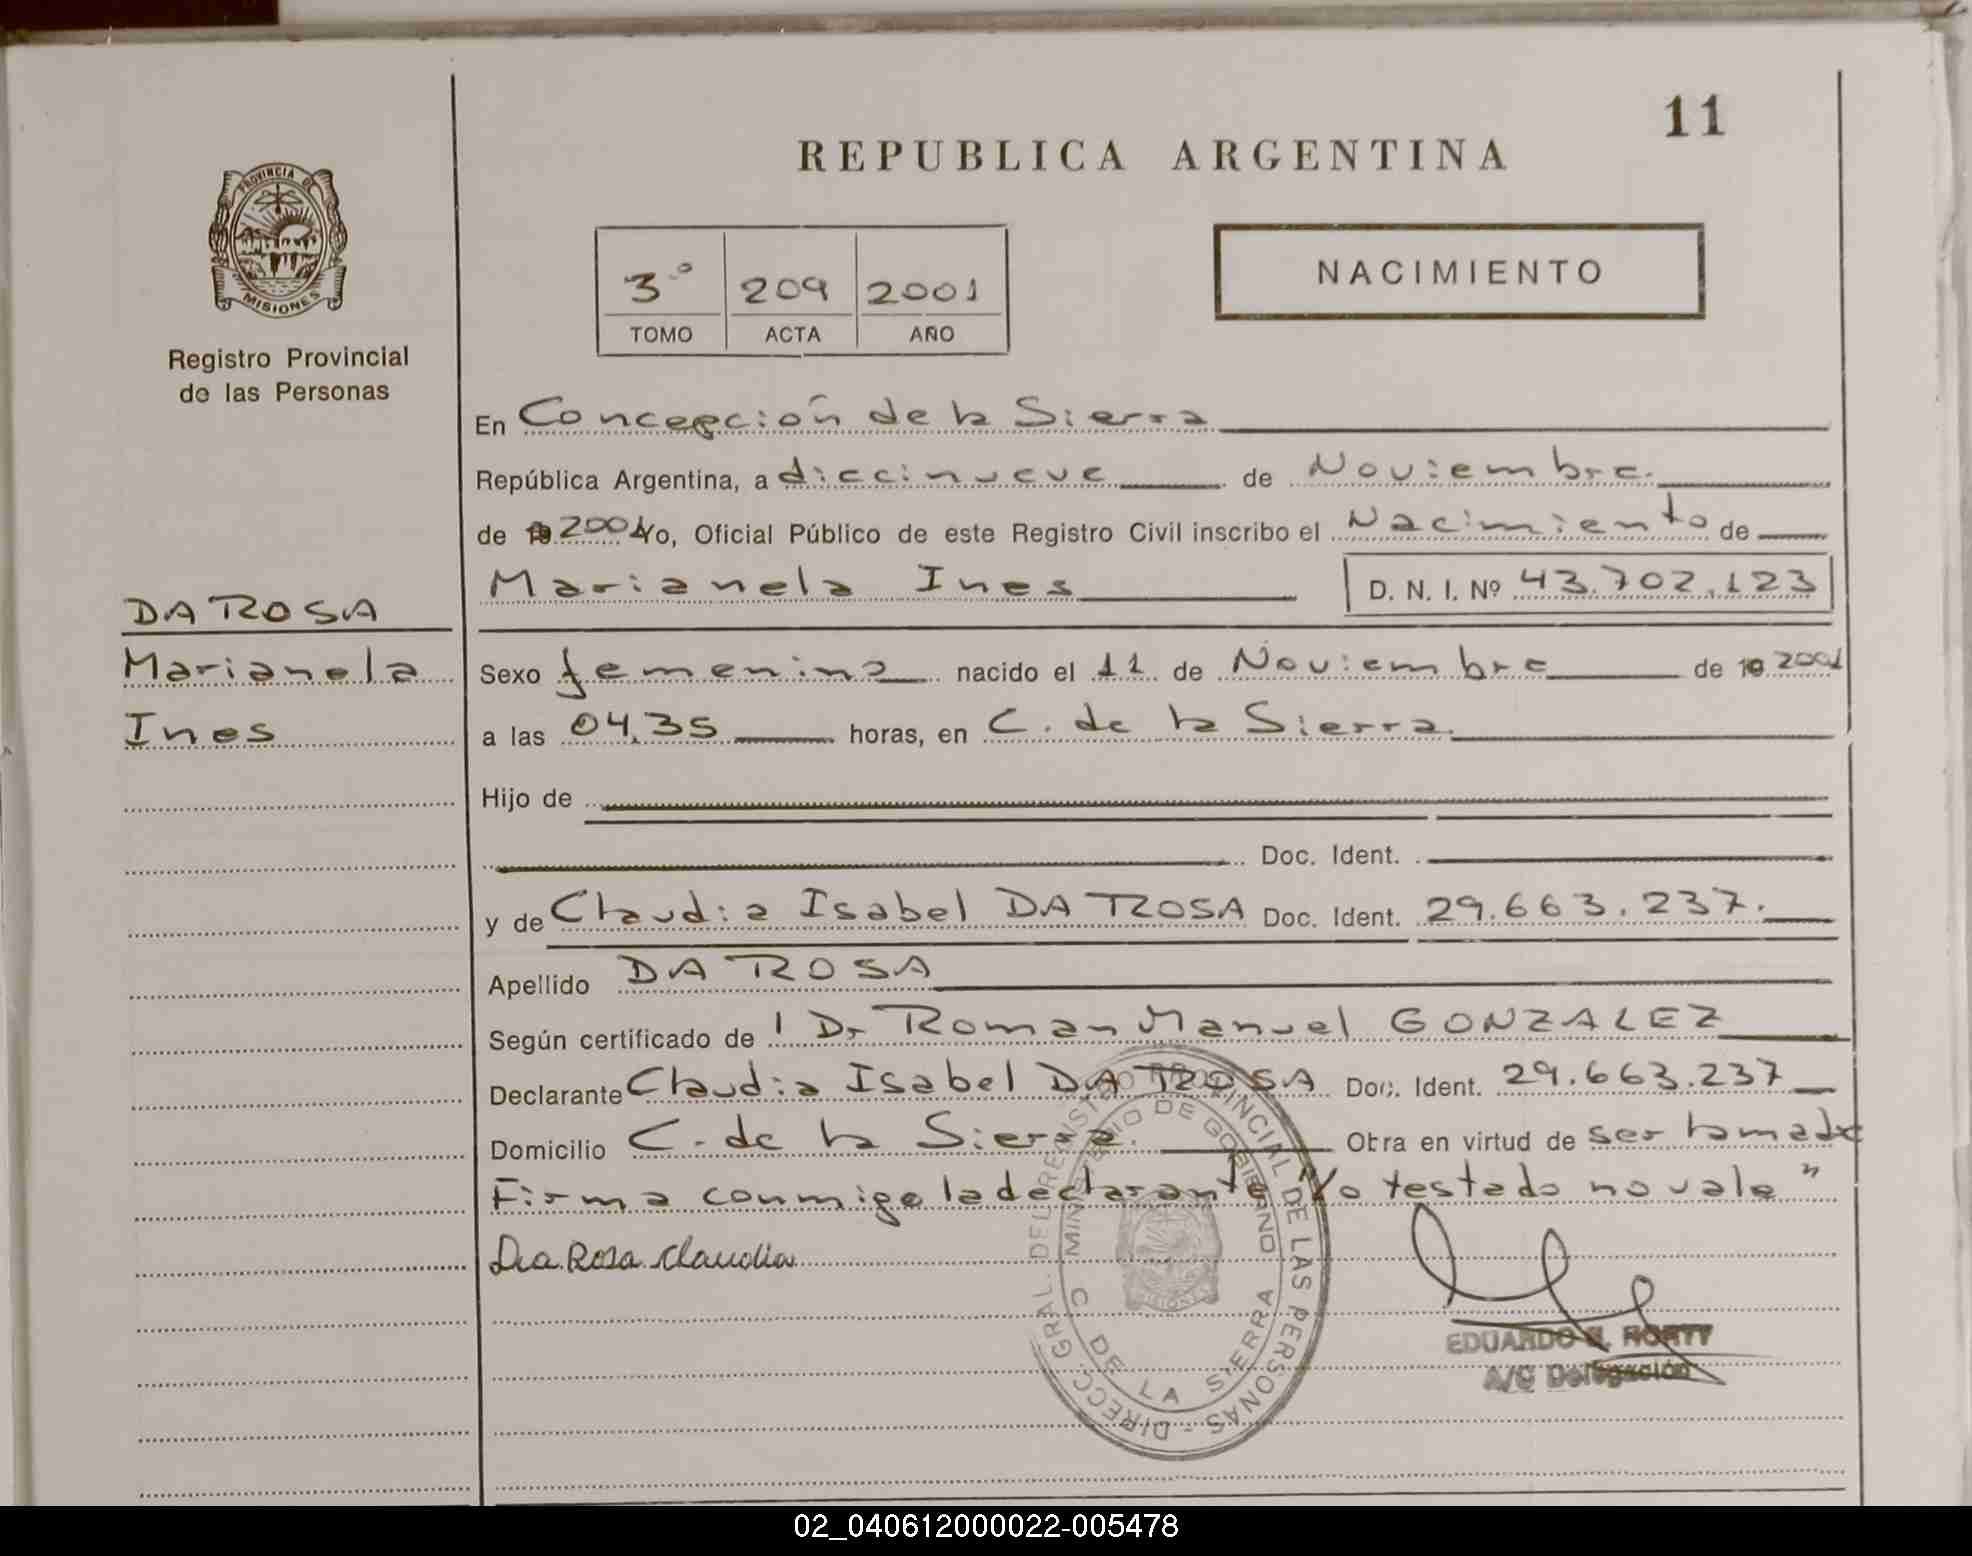 11
REPUBLICA ARGENTINA
PROVINCIA DE
MISIONES
Registro Provincial
de las Personas
3º 209 2001
TOMO ACTA AÑO
NACIMIENTO
En Concepción de la Sierra
República Argentina, a diecinueve de Noviembre.
de 19 2001 Yo, Oficial Público de este Registro Civil inscribo el Nacimiento de
Marianela Ines D. N. I. Nº 43.702.123
DA ROSA
Marianela
Ines
Sexo femenino nacido el 11 de Noviembre de 19 2001
a las 04,35 horas, en C. de la Sierra.
Hijo de
Doc. Ident.
y de Claudia Isabel DA ROSA Doc. Ident. 29.663.237.
Apellido DA ROSA
Según certificado de l Dr Roman Manuel GONZALEZ
Declarante Claudia Isabel DA ROSA Doc. Ident. 29.663.237
Domicilio C. de la Sierra. Obra en virtud de ser la madre
Firma conmigo la declarante "Lo testado no vale"
Da Rosa Claudia
DIRECC. GRAL. DEL REGISTRO PROVINCIAL DE LAS PERSONAS -
MINISTERIO DE GOBIERNO
MISIONES
C DE LA SIERRA
EDUARDO
A/C Delegación
02_040612000022-005478